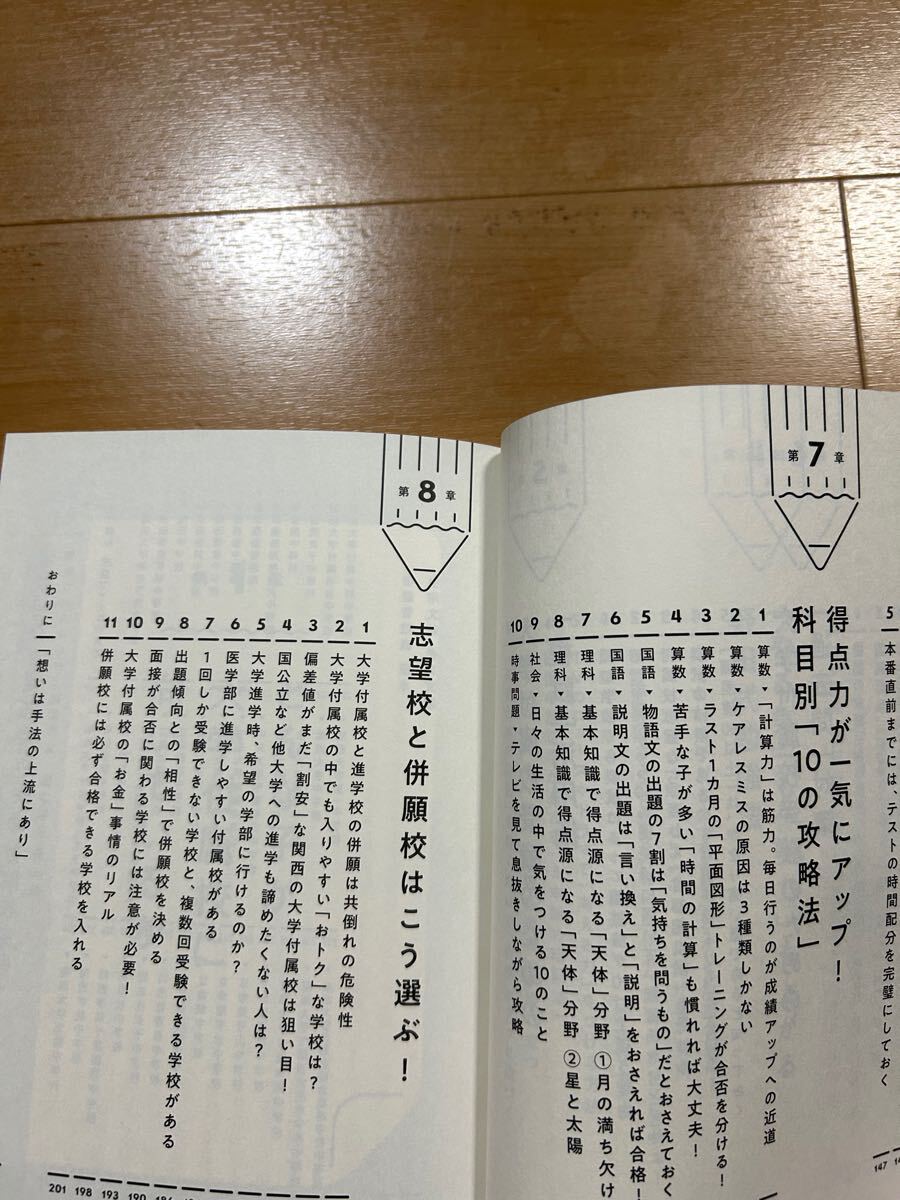 5 本番直前までには、テストの時間配分を完璧にしておく
147
第7章
得点力が一気にアップ！
科目別「10の攻略法」
1 算数▼「計算力」は筋力。毎日行うのが成績アップへの近道
2 算数▼ケアレスミスの原因は3種類しかない
3 算数▼ラスト1カ月の「平面図形」トレーニングが合否を分ける！
4 算数▼苦手な子が多い「時間の計算」も慣れれば大丈夫！
5 国語▼物語文の出題の7割は「気持ちを問うもの」だとおさえておく
6 国語▼説明文の出題は「言い換え」と「説明」をおさえれば合格！
7 理科▼基本知識で得点源になる「天体」分野 ①月の満ち欠け
8 理科▼基本知識で得点源になる「天体」分野 ②星と太陽
9 社会▼日々の生活の中で気をつける10のこと
10 時事問題▼テレビを見て息抜きしながら攻略
第8章
志望校と併願校はこう選ぶ！
1 大学付属校と進学校の併願は共倒れの危険性
2 大学付属校の中でも入りやすい「おトク」な学校は？
3 偏差値がまだ「割安」な関西の大学付属校は狙い目！
4 国公立など他大学への進学も諦めたくない人は？
5 大学進学時、希望の学部に行けるのか？
6 医学部に進学しやすい付属校がある
7 1回しか受験できない学校と、複数回受験できる学校がある
8 出題傾向との「相性」で併願校を決める
9 面接が合否に関わる学校には注意が必要！
10 大学付属校の「お金」事情のリアル
11 併願校には必ず合格できる学校を入れる
おわりに 「想いは手法の上流にあり」
190
193
198
201